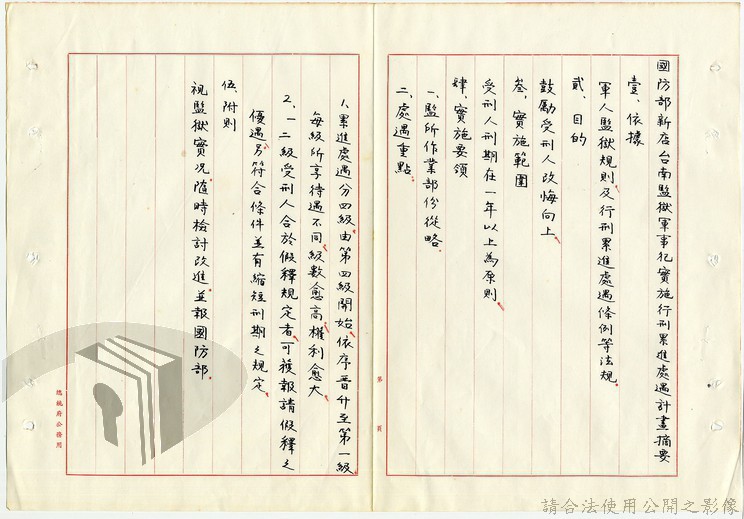 國防部新店台南監獄軍事犯實施行刑累進處遇計畫摘要
壹、依據
軍人監獄規則及行刑累進處遇條例等法規。
貳、目的
鼓勵受刑人改悔向上。
叁、實施範圍
受刑人刑期在一年以上為原則。
肆、實施要領
一、監所作業部份從略。
二、處遇重點。
1、累進處遇分四級,由第四級開始,依序晉升至第一級,
每級所享待遇不同,級數愈高,權利愈大。
2、一二級受刑人合於假釋規定者,可獲報請假釋之
優遇,另符合條件並有縮短刑期之規定。
伍、附則
視監獄實況,隨時檢討改進,並報國防部。
第 頁
總統府公務用
請合法使用公開之影像